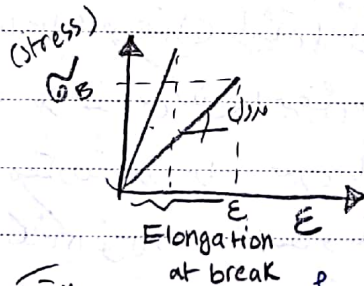 (stress)
σB
ε
ε
Elongation
at break